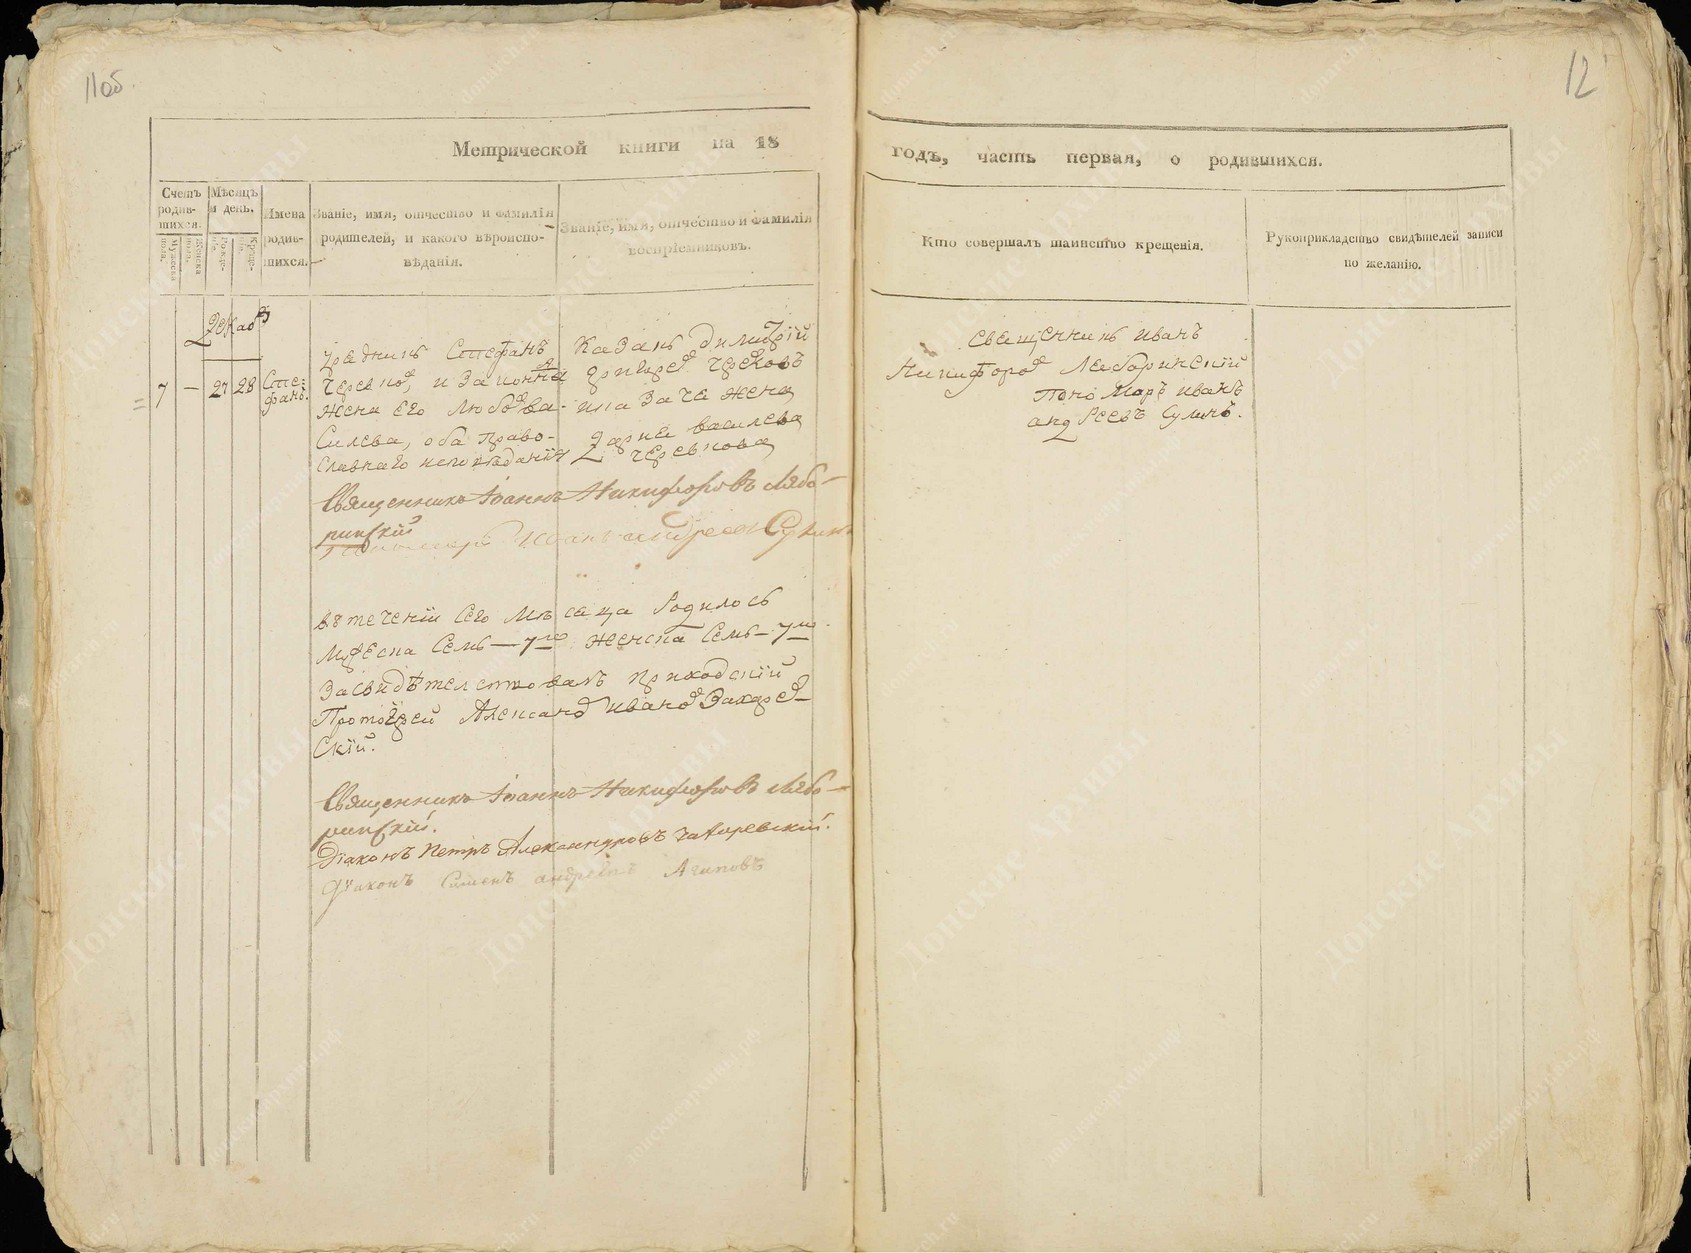 11об
12
Метрической книги на 18
годъ, часть первая, о родившихся.
Счетъ родив-
шихся.
Мужеска пола.
Женска пола.
Мѣсяцъ
и день.
Рожде-
Креще-
Имена
родив-
шихся.
Званіе, имя, отчество и фамилія
родителей, и какого вѣроиспо-
вѣданія.
Званіе, имя, отчество и фамилія
воспріемниковъ.
Кто совершалъ таинство крещенія.
Рукоприкладство свидѣтелей записи
по желанію.
Декаб
7 — 27 28
Сте-
фанъ.
Урядникъ Стефанъ
и законная
жена его Любовь Ва-
силева, оба право-
славнаго исповѣданія
Казакъ Димитрій
Григорев
казачя жена
Дарья василева
свещенникъ иванъ
Никифоров Лебаринский
Поно Марь иванъ
андреевъ Сулинъ.
Священникъ Іоаннъ Никифоровъ Лябо-
ринскій
Пономарь Иванъ андреевъ Сулинъ
въ теченіи сего мѣсаца Родилось
Мужеска семь — 7мо женска семь — 7мо
Засвидѣтелствовалъ приходскій
Протоіерей Александ иванов Захарев-
скій.
Священникъ Іоаннъ Никифоровъ Лябо-
ринскій.
Діаконъ Петръ Александровъ
андреевъ Агиповъ